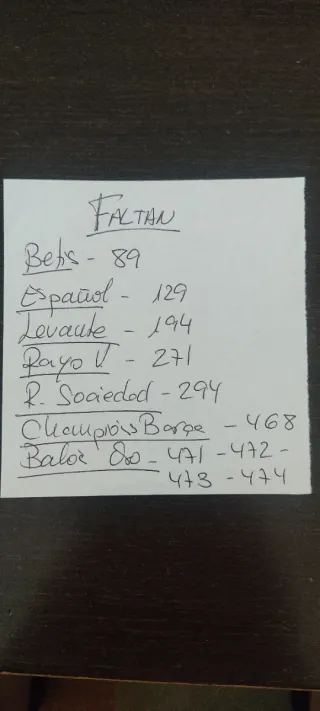 FALTAN
Betis - 89
Español - 129
Levante - 194
Rayo V - 271
R. Sociedad - 294
Champions Barça - 468
Balón Oro - 471 - 472 -
473 - 474